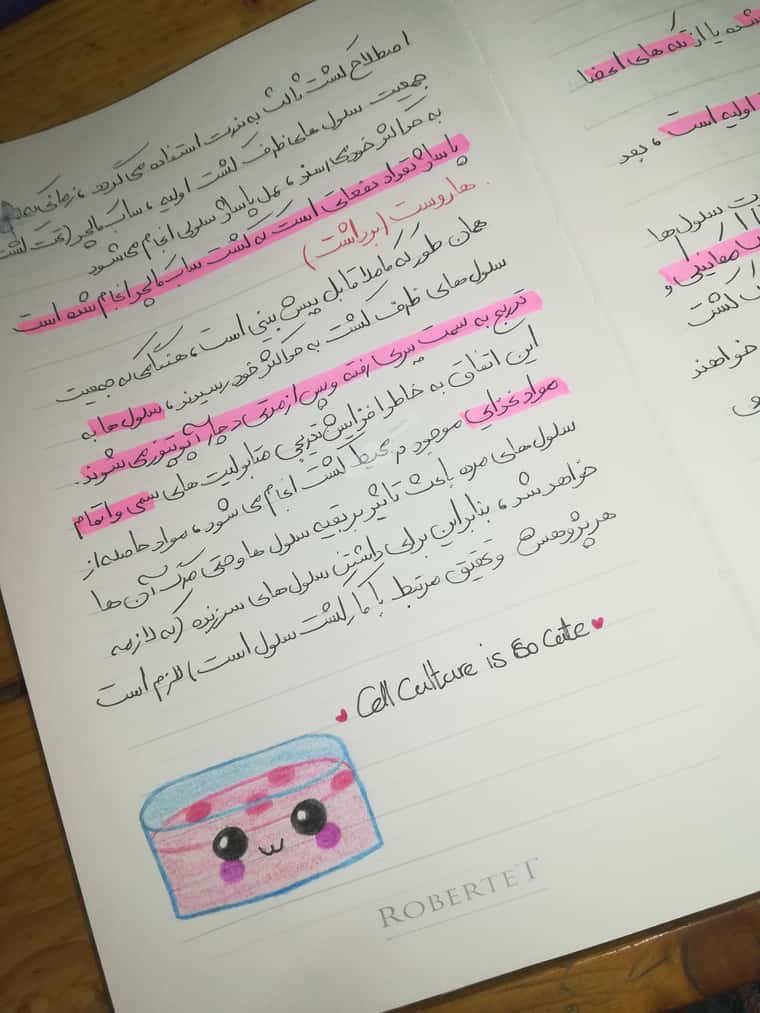 اصطلاح کشت ثالث به ندرت استفاده می گردد، زمانی که
جمعیت سلول های ظرف کشت اولیه، ساب کالچر (تحت کشت
به حداکثر خود می رسند، عمل پاساژ سلولی انجام می شود
پاساژ تعداد دفعاتی است که کشت ساب کالچر انجام شده است
هاروست (برداشت)
همان طور که کاملا قابل پیش بینی است، هنگامی که جمعیت
سلول های ظرف کشت به حداکثر خود رسیدند، سلول ها به
تدریج به سمت پیری رفته و پس از مدتی دچار آپوپتوز می شوند.
این اتفاق به خاطر افزایش تدریجی متابولیت های سمی و اتمام
مواد غذایی موجود در محیط کشت انجام می شود، مواد حاصله از
سلول های مرده باعث تاثیر بر بقیه سلول ها و حتی مرگ آن ها
خواهد شد، بنابراین برای داشتن سلول های سرزنده (که لازمه
هر پژوهش و تحقیق مرتبط با کار کشت سلول است) لازم است
Cell Culture is so cute
ROBERTET
شده یا از تکه های اعضا
اولیه است، بعد
سلول ها
و
کشت
خواهند